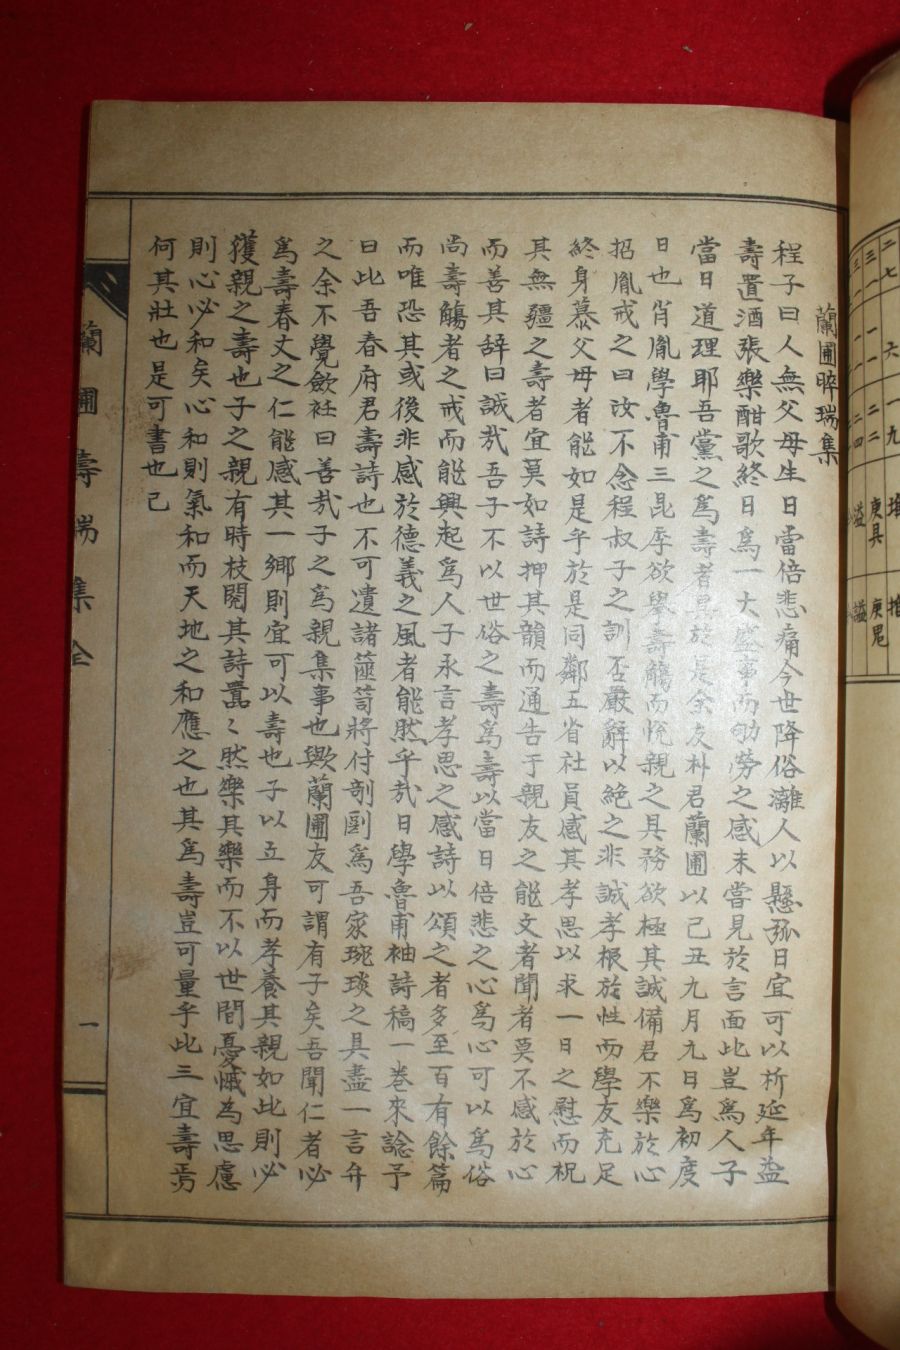 蘭圃晬瑞集
程子曰人無父母生日當倍悲痛今世降俗漓人以懸弧日宜可以祈延年益
壽置酒張樂酣歌終日爲一大盛事而劬勞之感未嘗見於言面此豈爲人子
當日道理耶吾黨之爲壽者異於是余友朴君蘭圃以己丑九月九日爲初度
日也肖胤學魯甫三昆季欲擧壽觴而悅親之具務欲極其誠備君不樂於心
招胤戒之曰汝不念程叔子之訓否嚴辭以絶之非誠孝根於性而學友充足
終身慕父母者能如是乎於是同鄰五省社員感其孝思以求一日之慰而祝
其無疆之壽者宜莫如詩押其韻而通告于親友之能文者聞者莫不感於心
而善其辞曰誠哉吾子不以世俗之壽爲壽以當日倍悲之心爲心可以爲俗
尚壽觴者之戒而能興起爲人子永言孝思之感詩以頌之者多至百有餘篇
而唯恐其或後非感於德義之風者能然乎哉日學魯甫袖詩稿一卷來諗予
曰此吾春府君壽詩也不可遺諸篋笥將付剞劂爲吾家琬琰之具盍一言弁
之余不覺斂衽曰善哉子之爲親集事也歟蘭圃友可謂有子矣吾聞仁者必
爲壽春丈之仁能感其一鄉則宜可以壽也子以立身而孝養其親如此則必
獲親之壽也子之親有時枝閱其詩囂〻然樂其樂而不以世間憂慽为思慮
則心必和矣心和則氣和而天地之和應之也其爲壽豈可量乎此三宜壽焉
何其壯也是可書也已
蘭圃壽瑞集全
一
二七 六 一九
三一 一 二二 庚具 庚尾